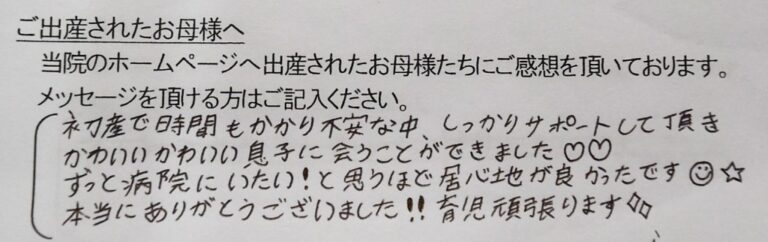 ご出産されたお母様へ
当院のホームページへ出産されたお母様たちにご感想を頂いております。
メッセージを頂ける方はご記入ください。
初産で時間もかかり不安な中、しっかりサポートして頂き
かわいいかわいい息子に会うことができました♡♡
ずっと病院にいたい!と思うほど居心地が良かったです☺☆
本当にありがとうございました!!育児頑張ります